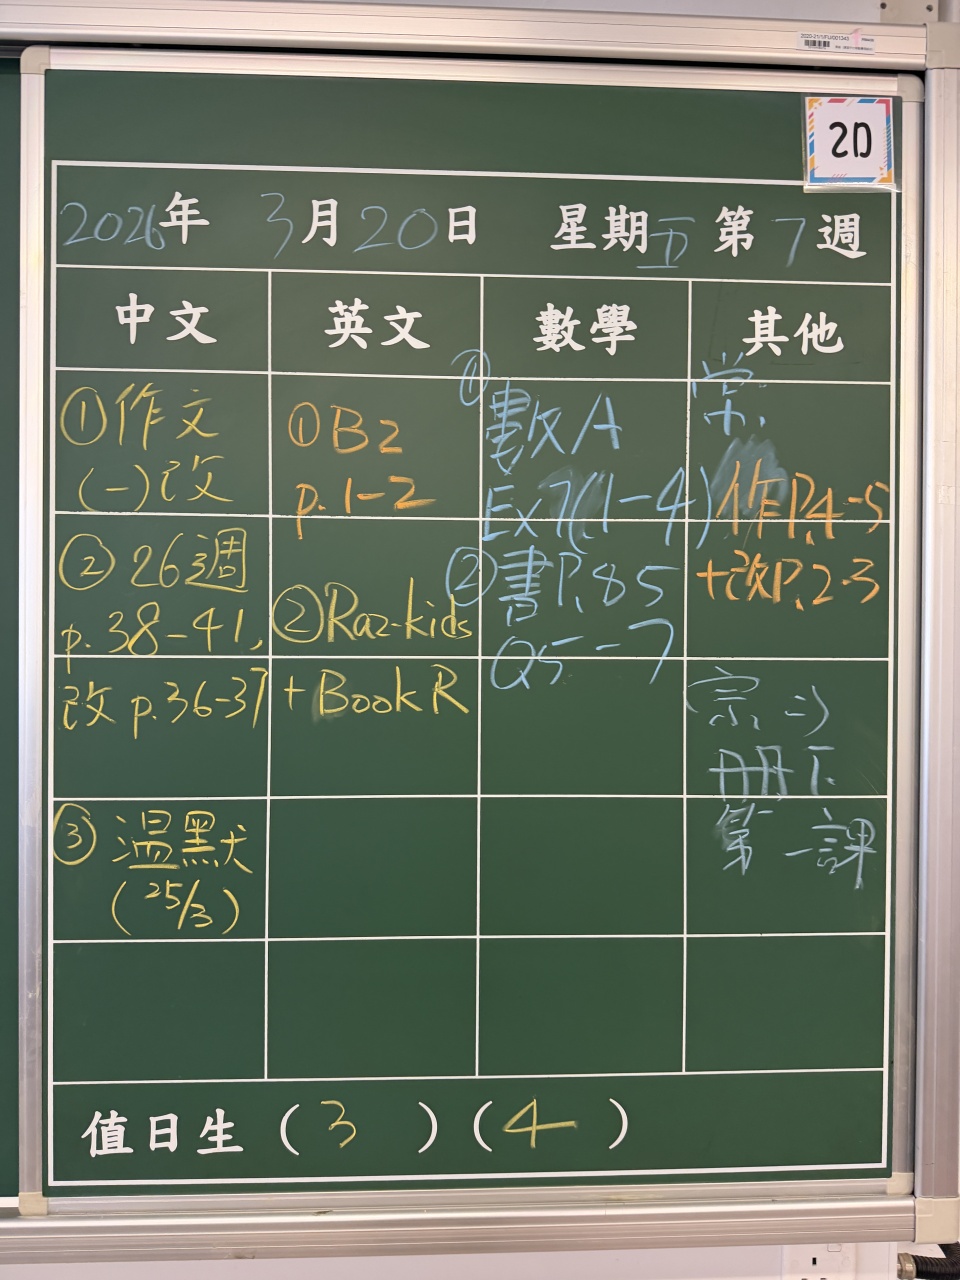 2020-21/1/FU/001343
2D
2026年 3月20日 星期五 第7週
中文 英文 數學 其他
①作文
(一)改
②26週
p.38-41,
改 p.36-37
③溫默
(25/3)
①B2
p.1-2
②Raz-kids
+Book R
①
數A
Ex7(1-4)
②書P.85
Q5-7
常
作P.4-5
+改P.2-3
第一課
值日生(3)(4)